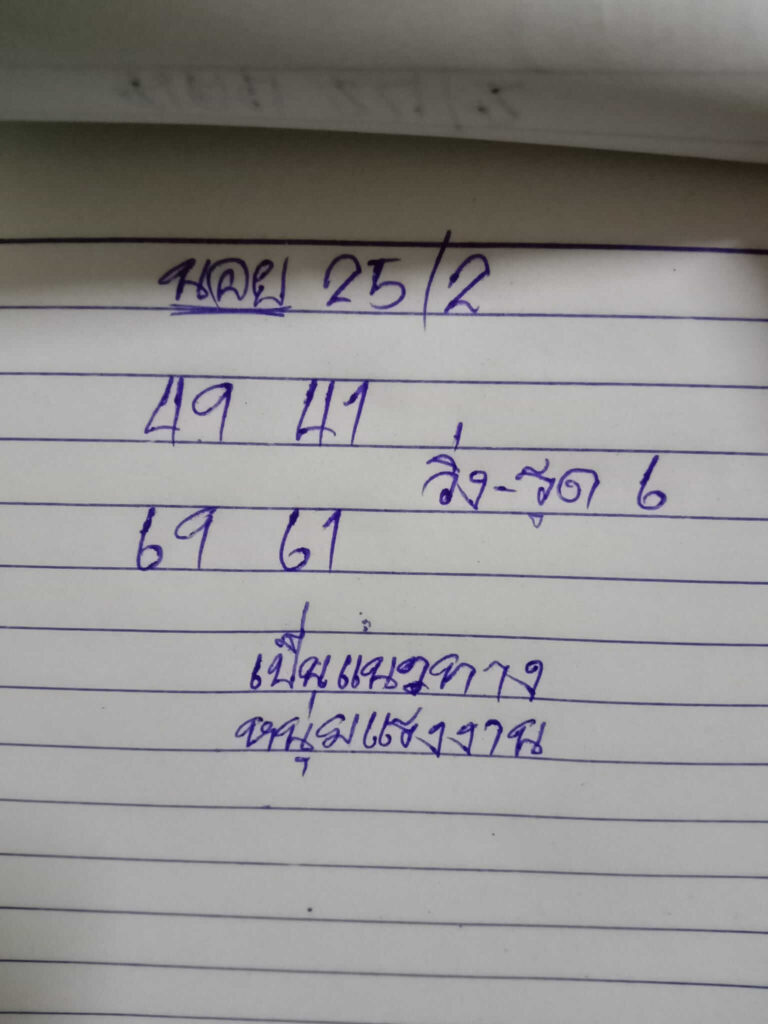 นอย 25/2
49 41
วิ่ง-รูด 6
69 61
เป็นแนวทาง
หนุ่มแรงงาน